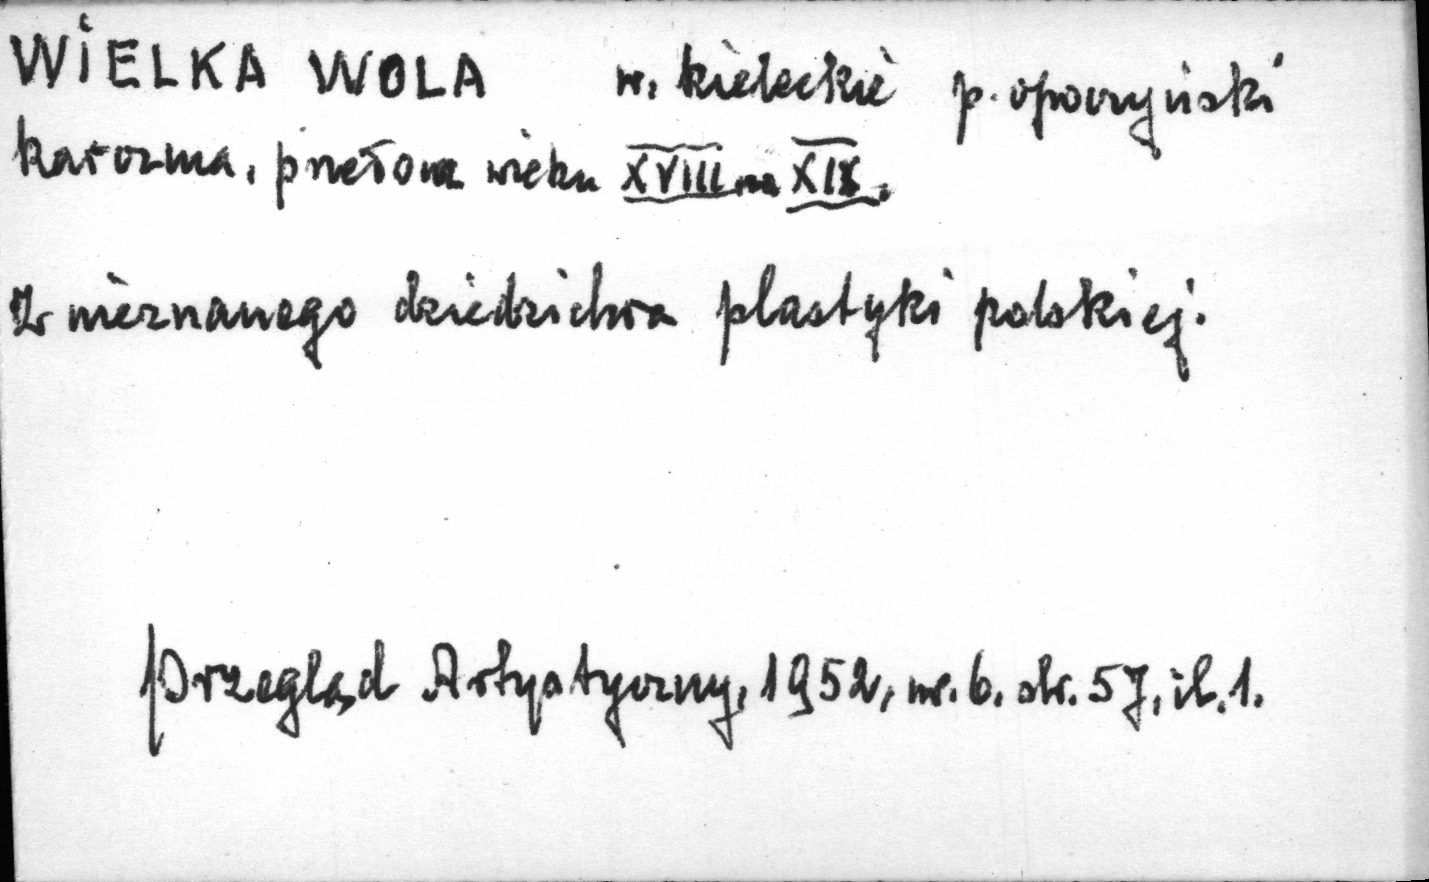 WIELKA WOLA w. kieleckie p. opoczyński
karczma, przełom wieku XVIII na XIX.
Z nieznanego dziedzictwa plastyki polskiej.
Przegląd Artystyczny, 1952, nr. 6. str. 57, il. 1.